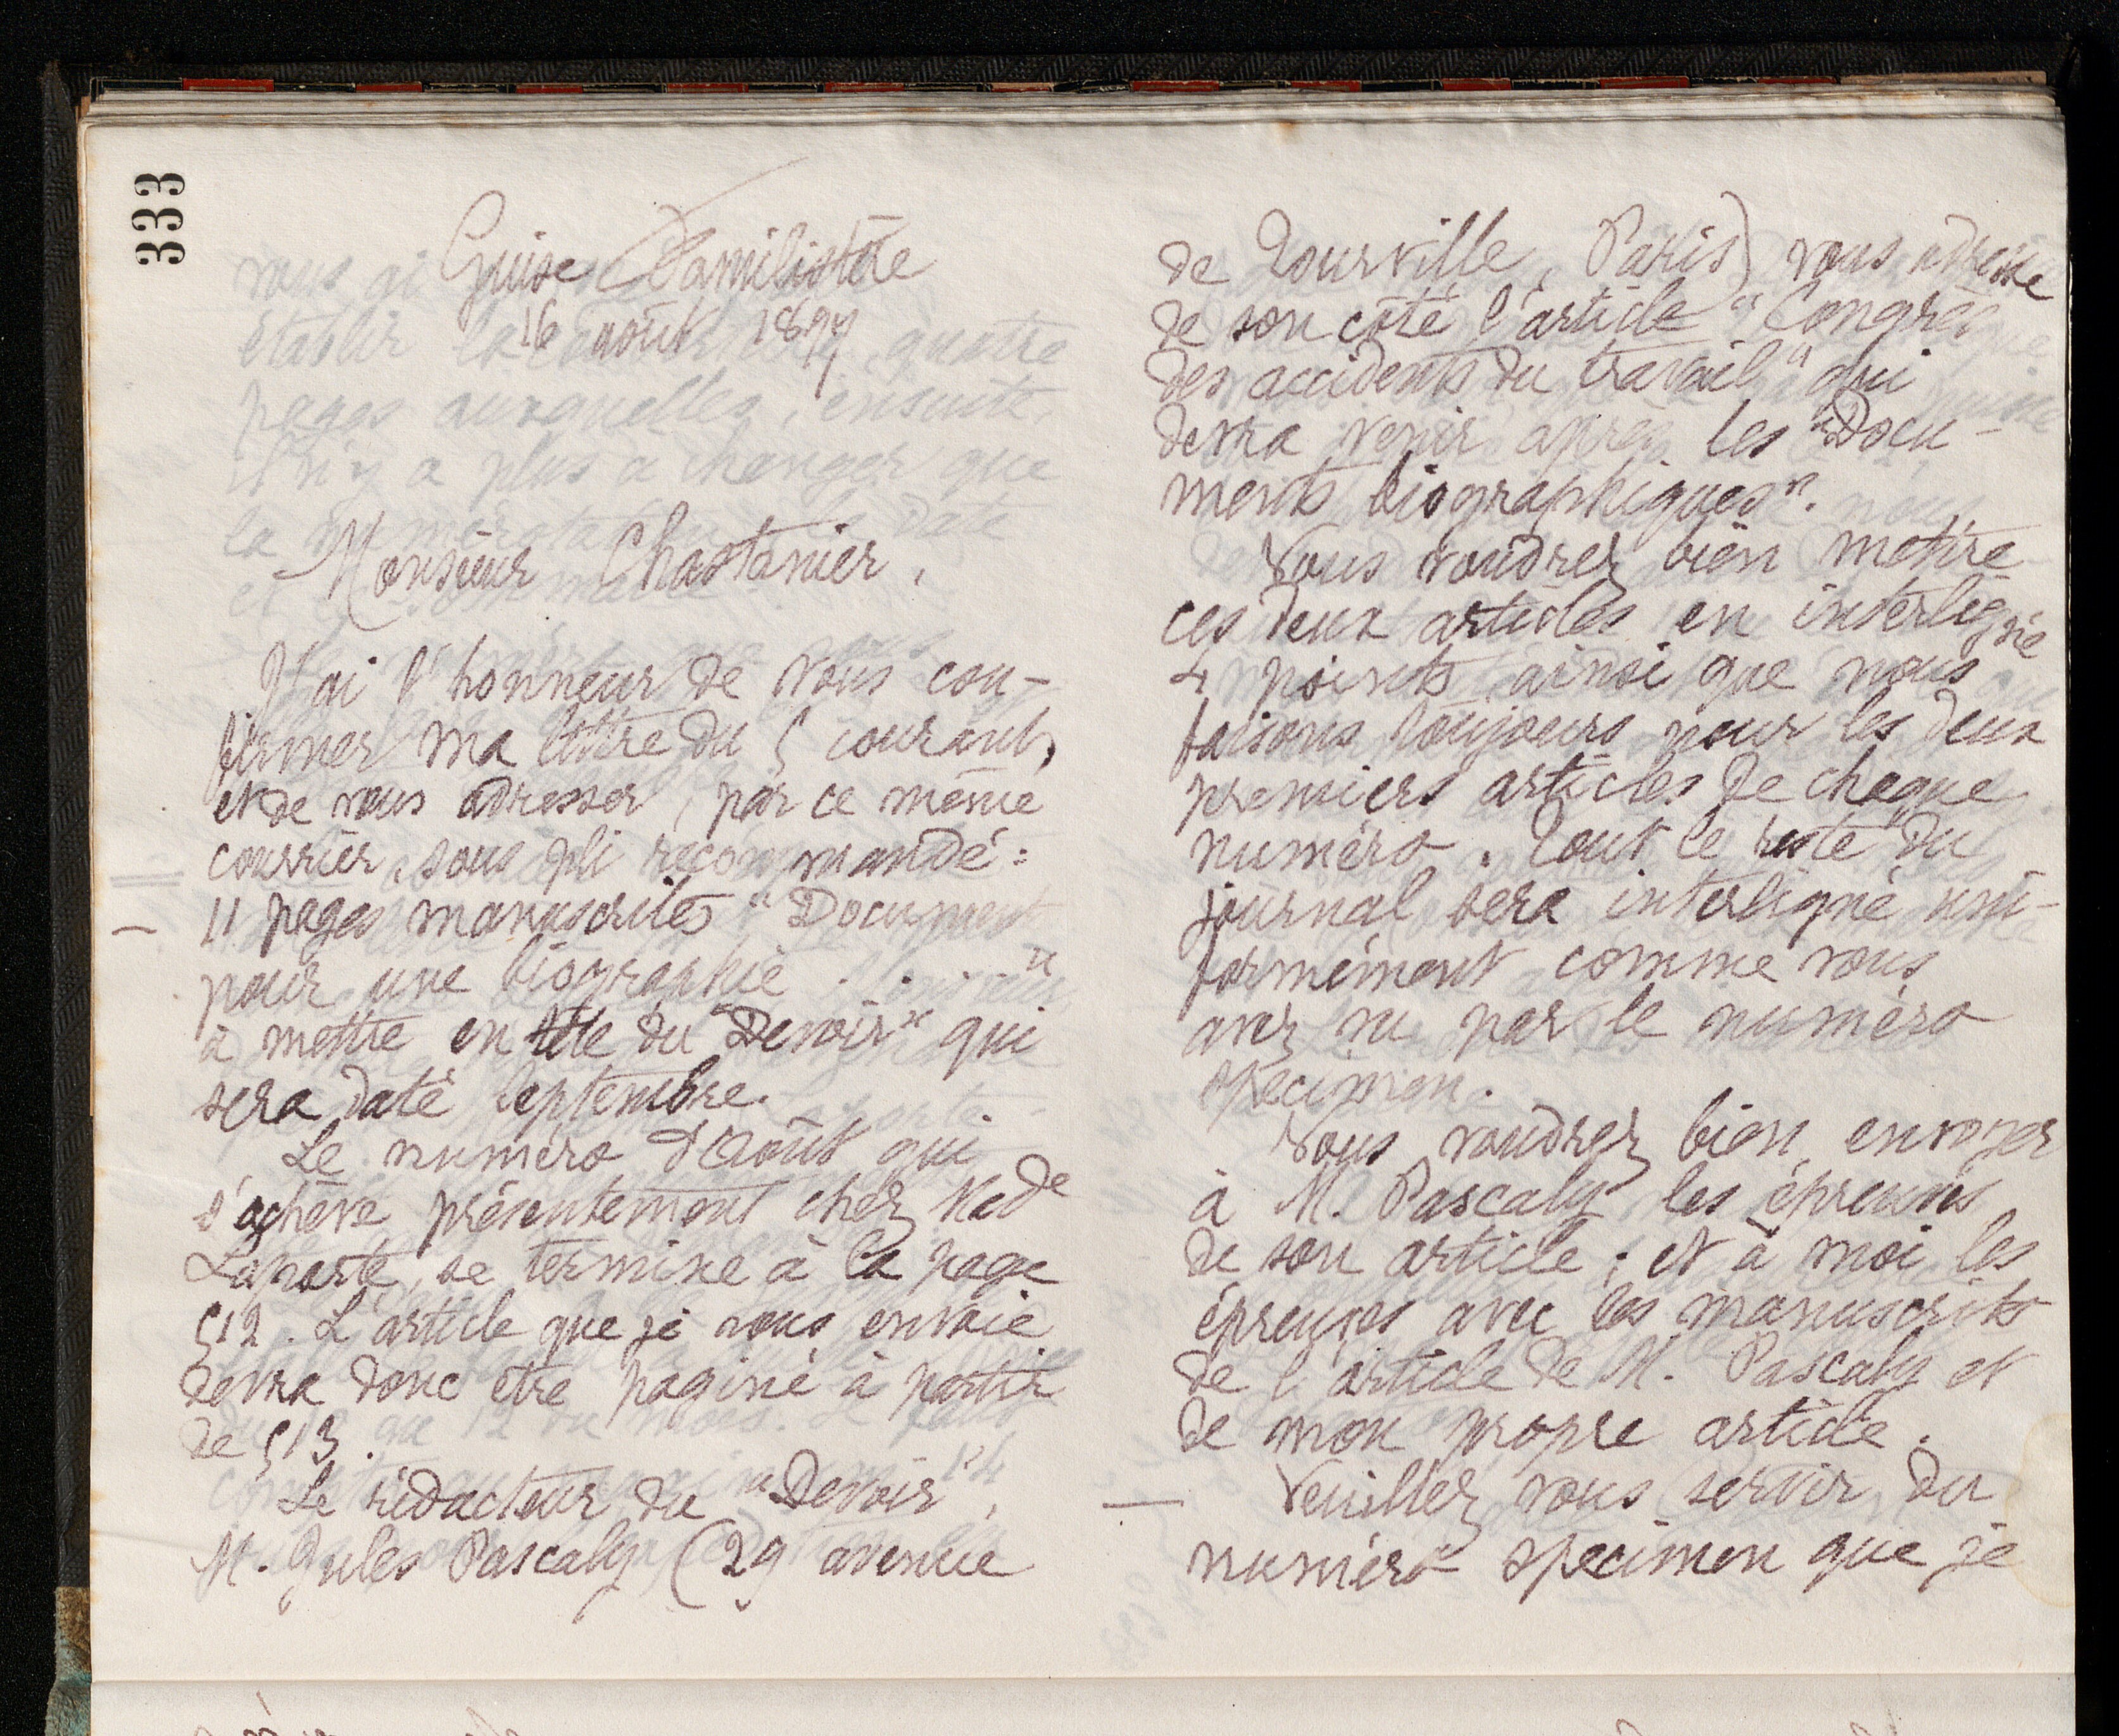 333
Guise Familistère
16 août 1897
Monsieur Chastanier,
J'ai l'honneur de vous con-
firmer ma lettre du 5 courant,
et de vous adresser, par ce même
courrier, sous pli recommandé :
11 pages manuscrites "Document
pour une biographie . . . "
à mettre en tête du "Devoir" qui
sera daté Septembre.
Le numéro d'Août qui
s'achève présentement chez Mad
Laporte, se termine à la page
512. L'article que je vous envoie
devra donc être paginé à partir
de 513.
Le rédacteur du "Devoir",
M. Jules Pascaly (29 avenue
de Tourville, Paris) vous adresse
de son côté l'article "Congrès
des accidents du travail" qui
devra venir après les "Docu-
ments biographiques".
Vous voudrez bien mettre
ces deux articles en interligne
4 points ainsi que nous
faisons toujours pour les deux
premiers articles de chaque
numéro. Tout le reste du
journal sera interligné uni-
formément comme vous
avez vu par le numéro
specimen.
Vous voudrez bien envoyer
à M. Pascaly les épreuves
de son article ; et à moi les
épreuves avec les manuscrits
de l'article de M. Pascaly et
de mon propre article.
Veuillez vous servir du
numéro specimen que je